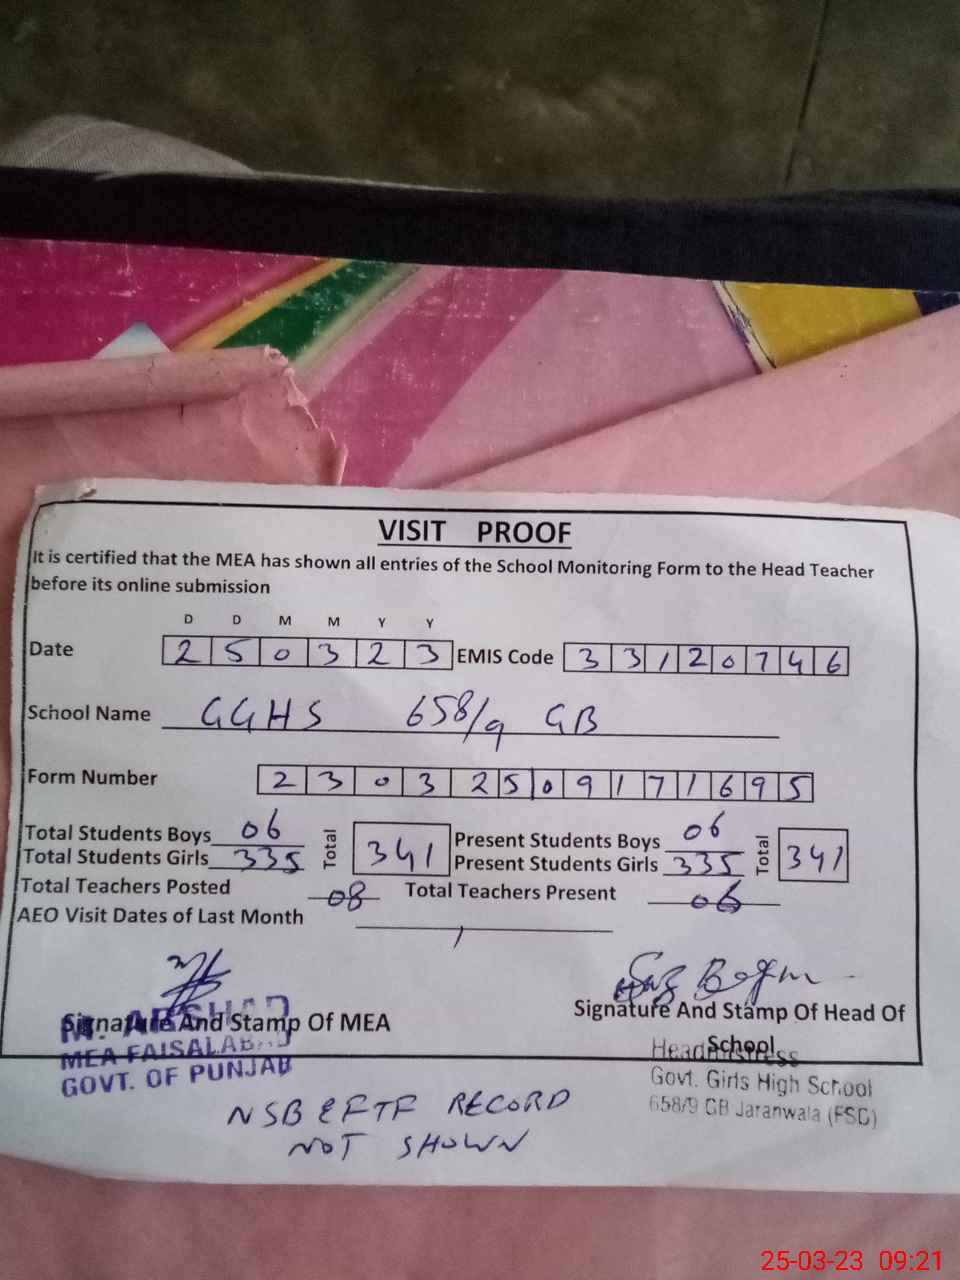 VISIT PROOF
It is certified that the MEA has shown all entries of the School Monitoring Form to the Head Teacher
before its online submission
D D M M Y Y
Date 2 5 0 3 2 3 EMIS Code 3 3 1 2 0 7 4 6
School Name GGHS 658/9 GB
Form Number 2 3 0 3 2 5 0 9 1 7 1 6 9 5
Total Students Boys 06 Total 341 Present Students Boys 06 Total 341
Total Students Girls 335 Present Students Girls 335
Total Teachers Posted 08 Total Teachers Present 06
AEO Visit Dates of Last Month /
Signature And Stamp Of MEA
M. ARSHAD
MEA FAISALABAD
GOVT. OF PUNJAB
Begum
Signature And Stamp Of Head Of
School
Headmistress
Govt. Girls High School
658/9 GB Jaranwala (FSD)
NSB & FTF RECORD
NOT SHOWN
25-03-23 09:21